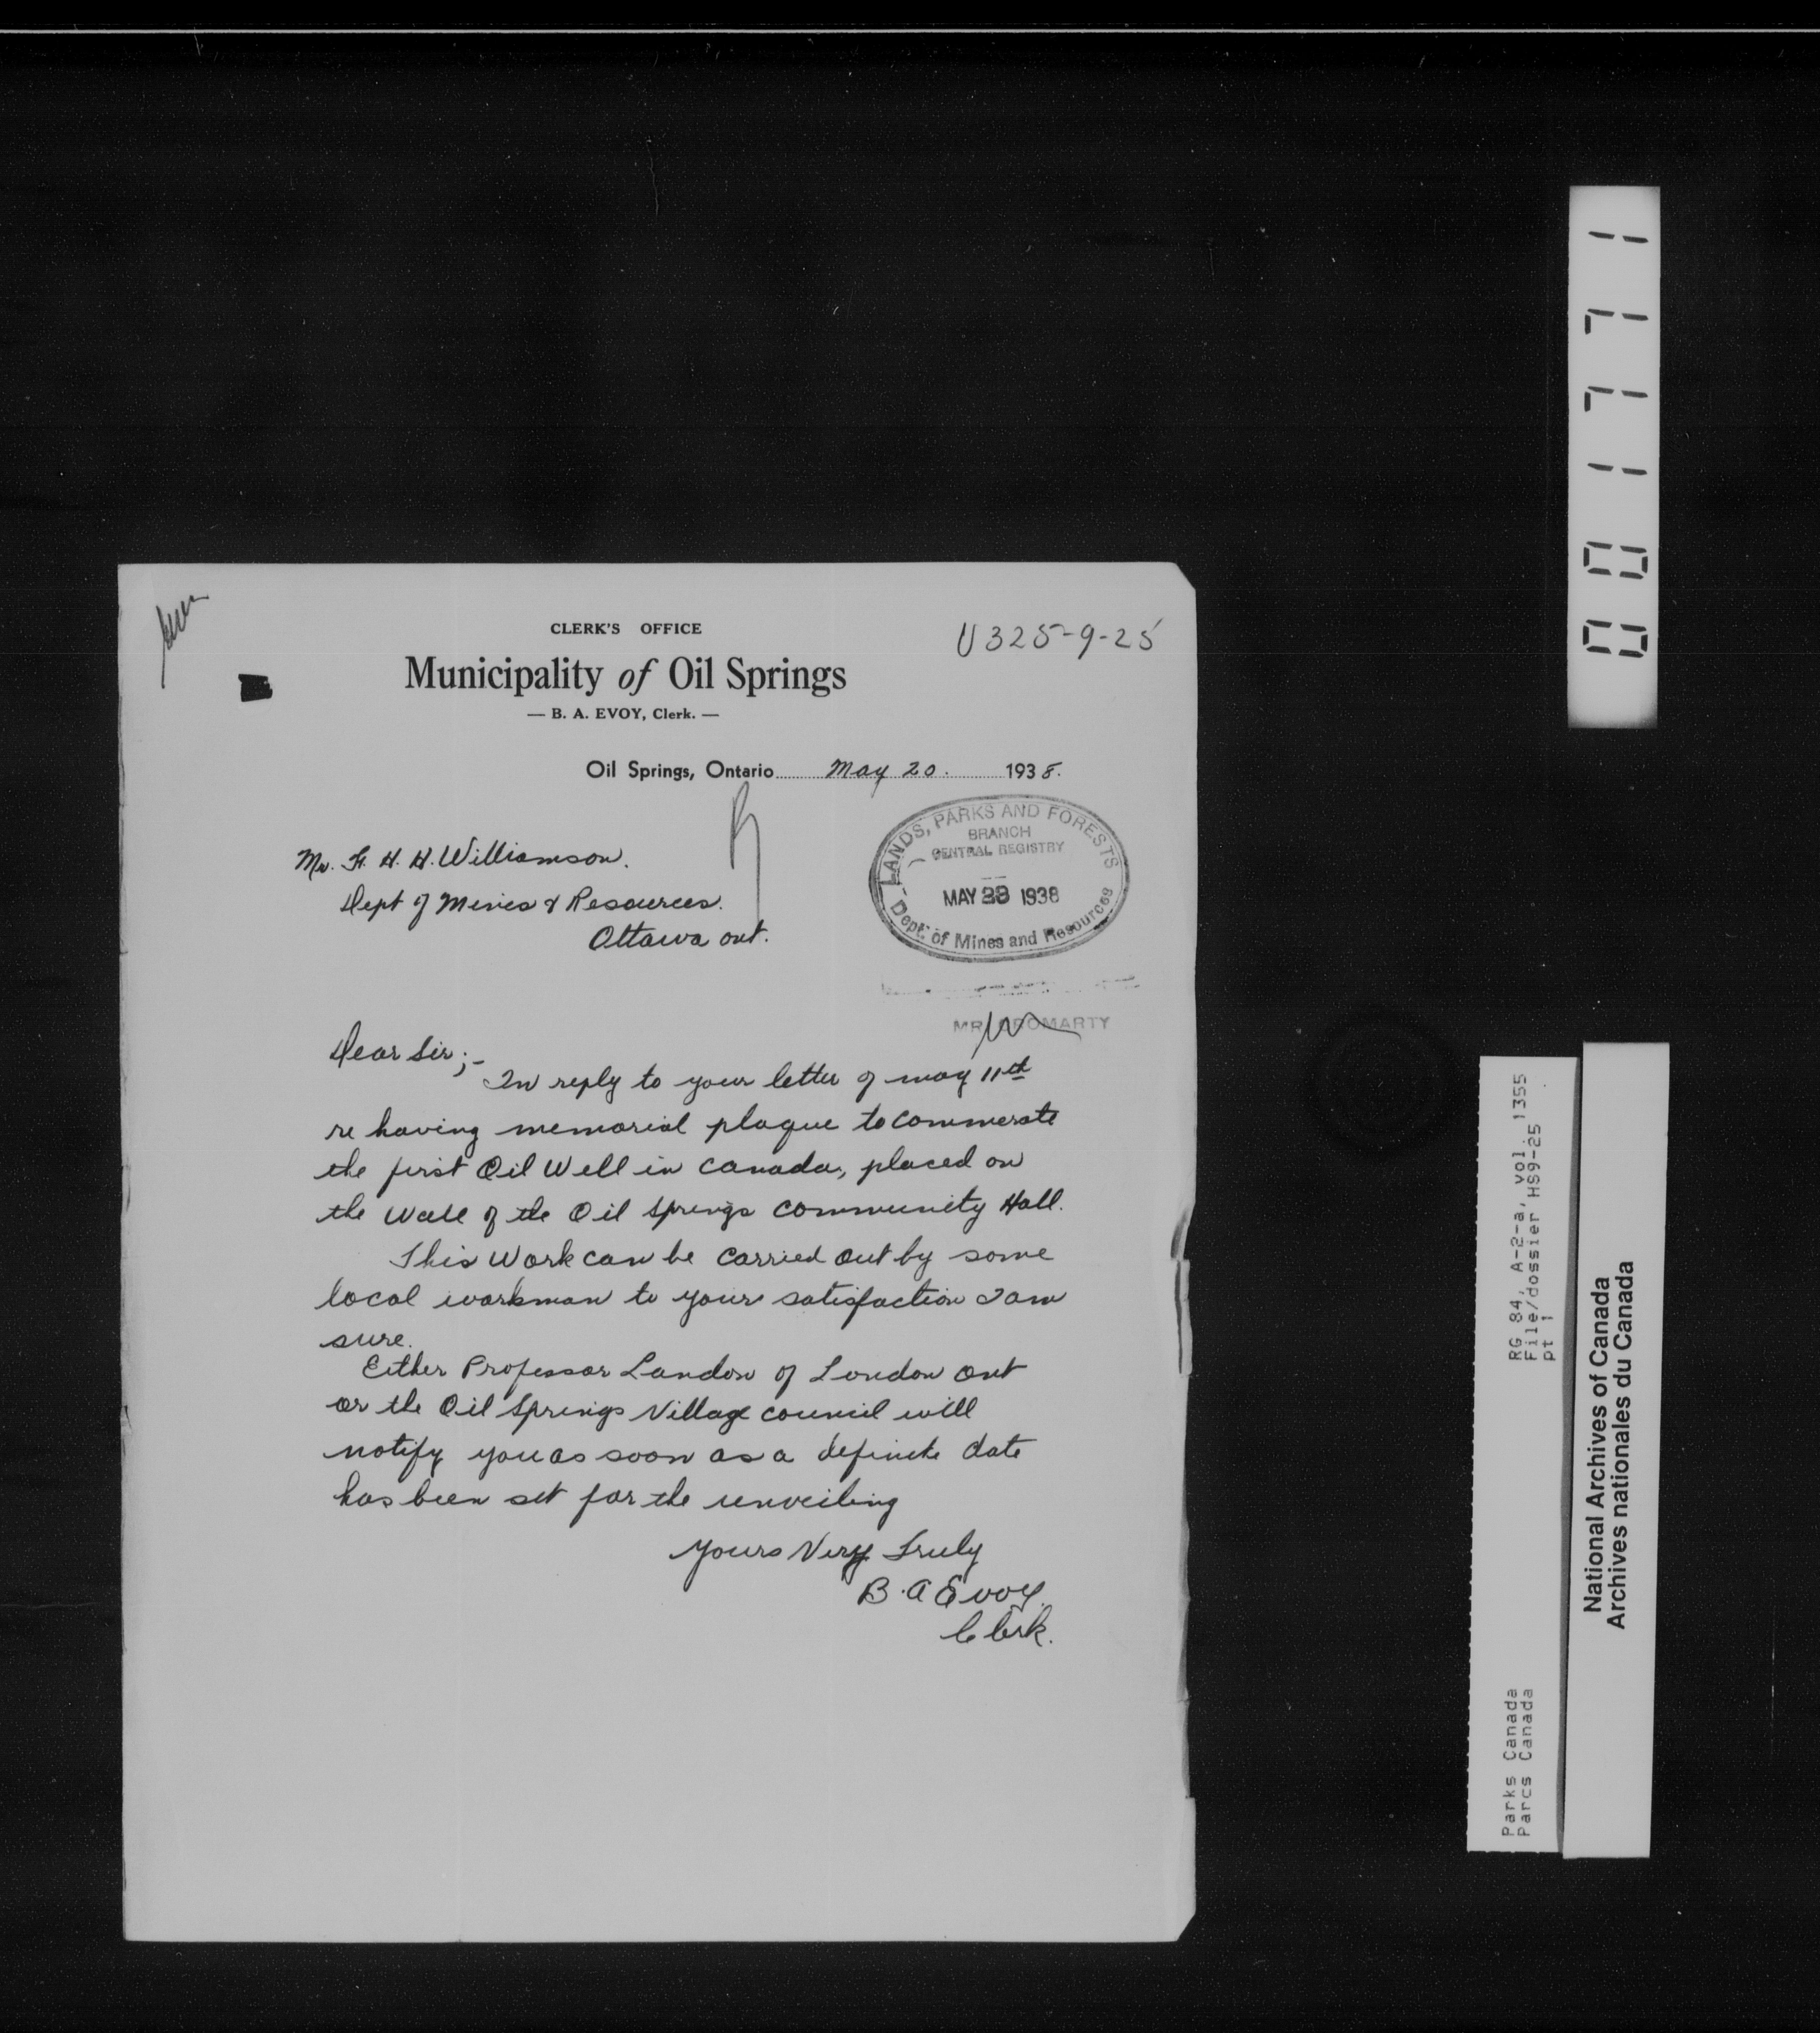 CLERK'S OFFICE
U325-9-25
Municipality of Oil Springs
— B. A. EVOY, Clerk. —
Oil Springs, Ontario May 20. 1938.
LANDS, PARKS AND FORESTS
BRANCH
CENTRAL REGISTRY
MAY 1938
Dept. of Mines and Resources
Mr. F. H. H. Williamson.
Dept of Mines & Resources.
Ottawa ont.
MR. CROMARTY
Dear Sir;-
In reply to your letter of may 11th
re having memorial plaque to commerate
the first Oil Well in Canada, placed on
the wall of the Oil Springs Community Hall.
This Work can be carried out by some
local workman to your satisfaction I am
sure.
Either Professor Landon of London Ont
or the Oil Springs Village council will
notify you as soon as a definite date
has been set for the unveiling
Yours Very Truly
B. A Evoy.
Clerk.
001771
RG 84, A-2-a, vol. 1355
File/dossier HS9-25
pt 1
Parks Canada
Parcs Canada
National Archives of Canada
Archives nationales du Canada